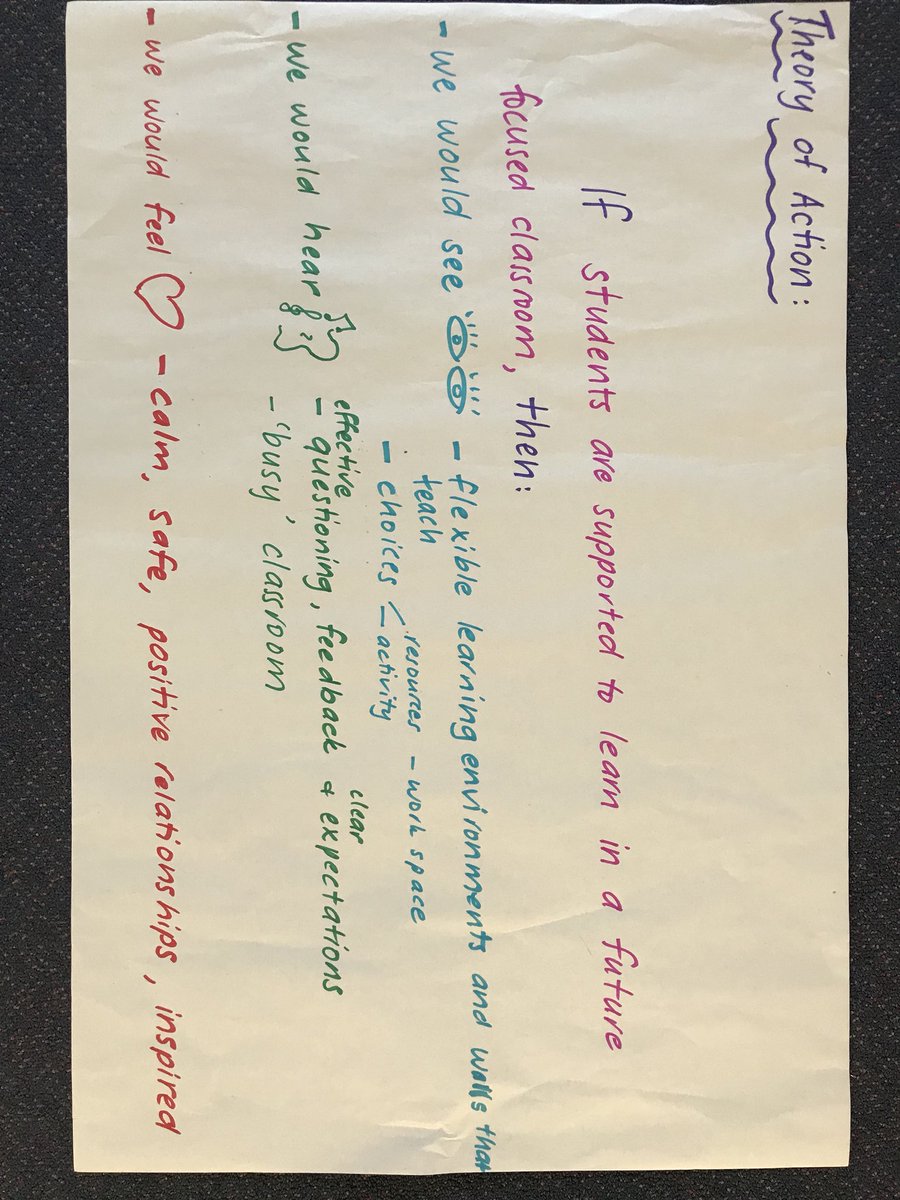 Theory of Action:
If students are supported to learn in a future
focused classroom, then:
- we would see - flexible learning environments and walls that
teach
- choices - resources - work space
- activity
- we would hear - effective questioning, feedback & clear expectations
- 'busy' classroom
- we would feel - calm, safe, positive relationships, inspired